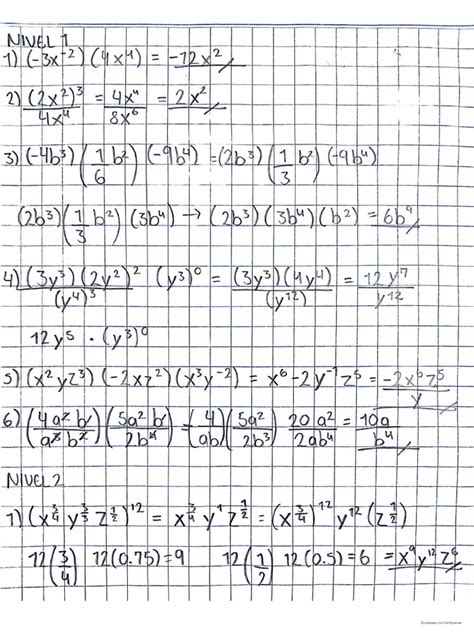 NIVEL 1
1) (-3x⁻²) (4x⁴) = -12x²
2) (2x²)³/4x⁴ = 4x⁴/8x⁶ = 2x²
3) (-4b³) (1/6 b²) (-9b⁴) = (2b³) (1/3 b²) (-9b⁴)
(2b³) (1/3 b²) (3b⁴) → (2b³) (3b⁴) (b²) = 6b⁹
4) (3y³) (2y²)²/(y⁴)³ (y³)⁰ = (3y³)(4y⁴)/(y¹²) = 12y⁷/y¹²
12y⁵ · (y³)⁰
5) (x²yz³) (-2xz²) (x³y⁻²) = x⁶ - 2y⁻¹z⁵ = -2x⁶z⁵/y
6) (4a²b/a³b²) (5a²b/2b⁴) = (4/ab) (5a²/2b³) 20a²/2ab⁴ = 10a/b⁴
NIVEL 2
1) (x^3/4 y^3/3 z^1/2)¹² = x^3/4 y¹ z^1/2 = (x^3/4)¹² y¹² (z^1/2)
12(3/4) 12(0.75) = 9 12(1/2) 12(0.5) = 6 = x⁹y¹²z⁶